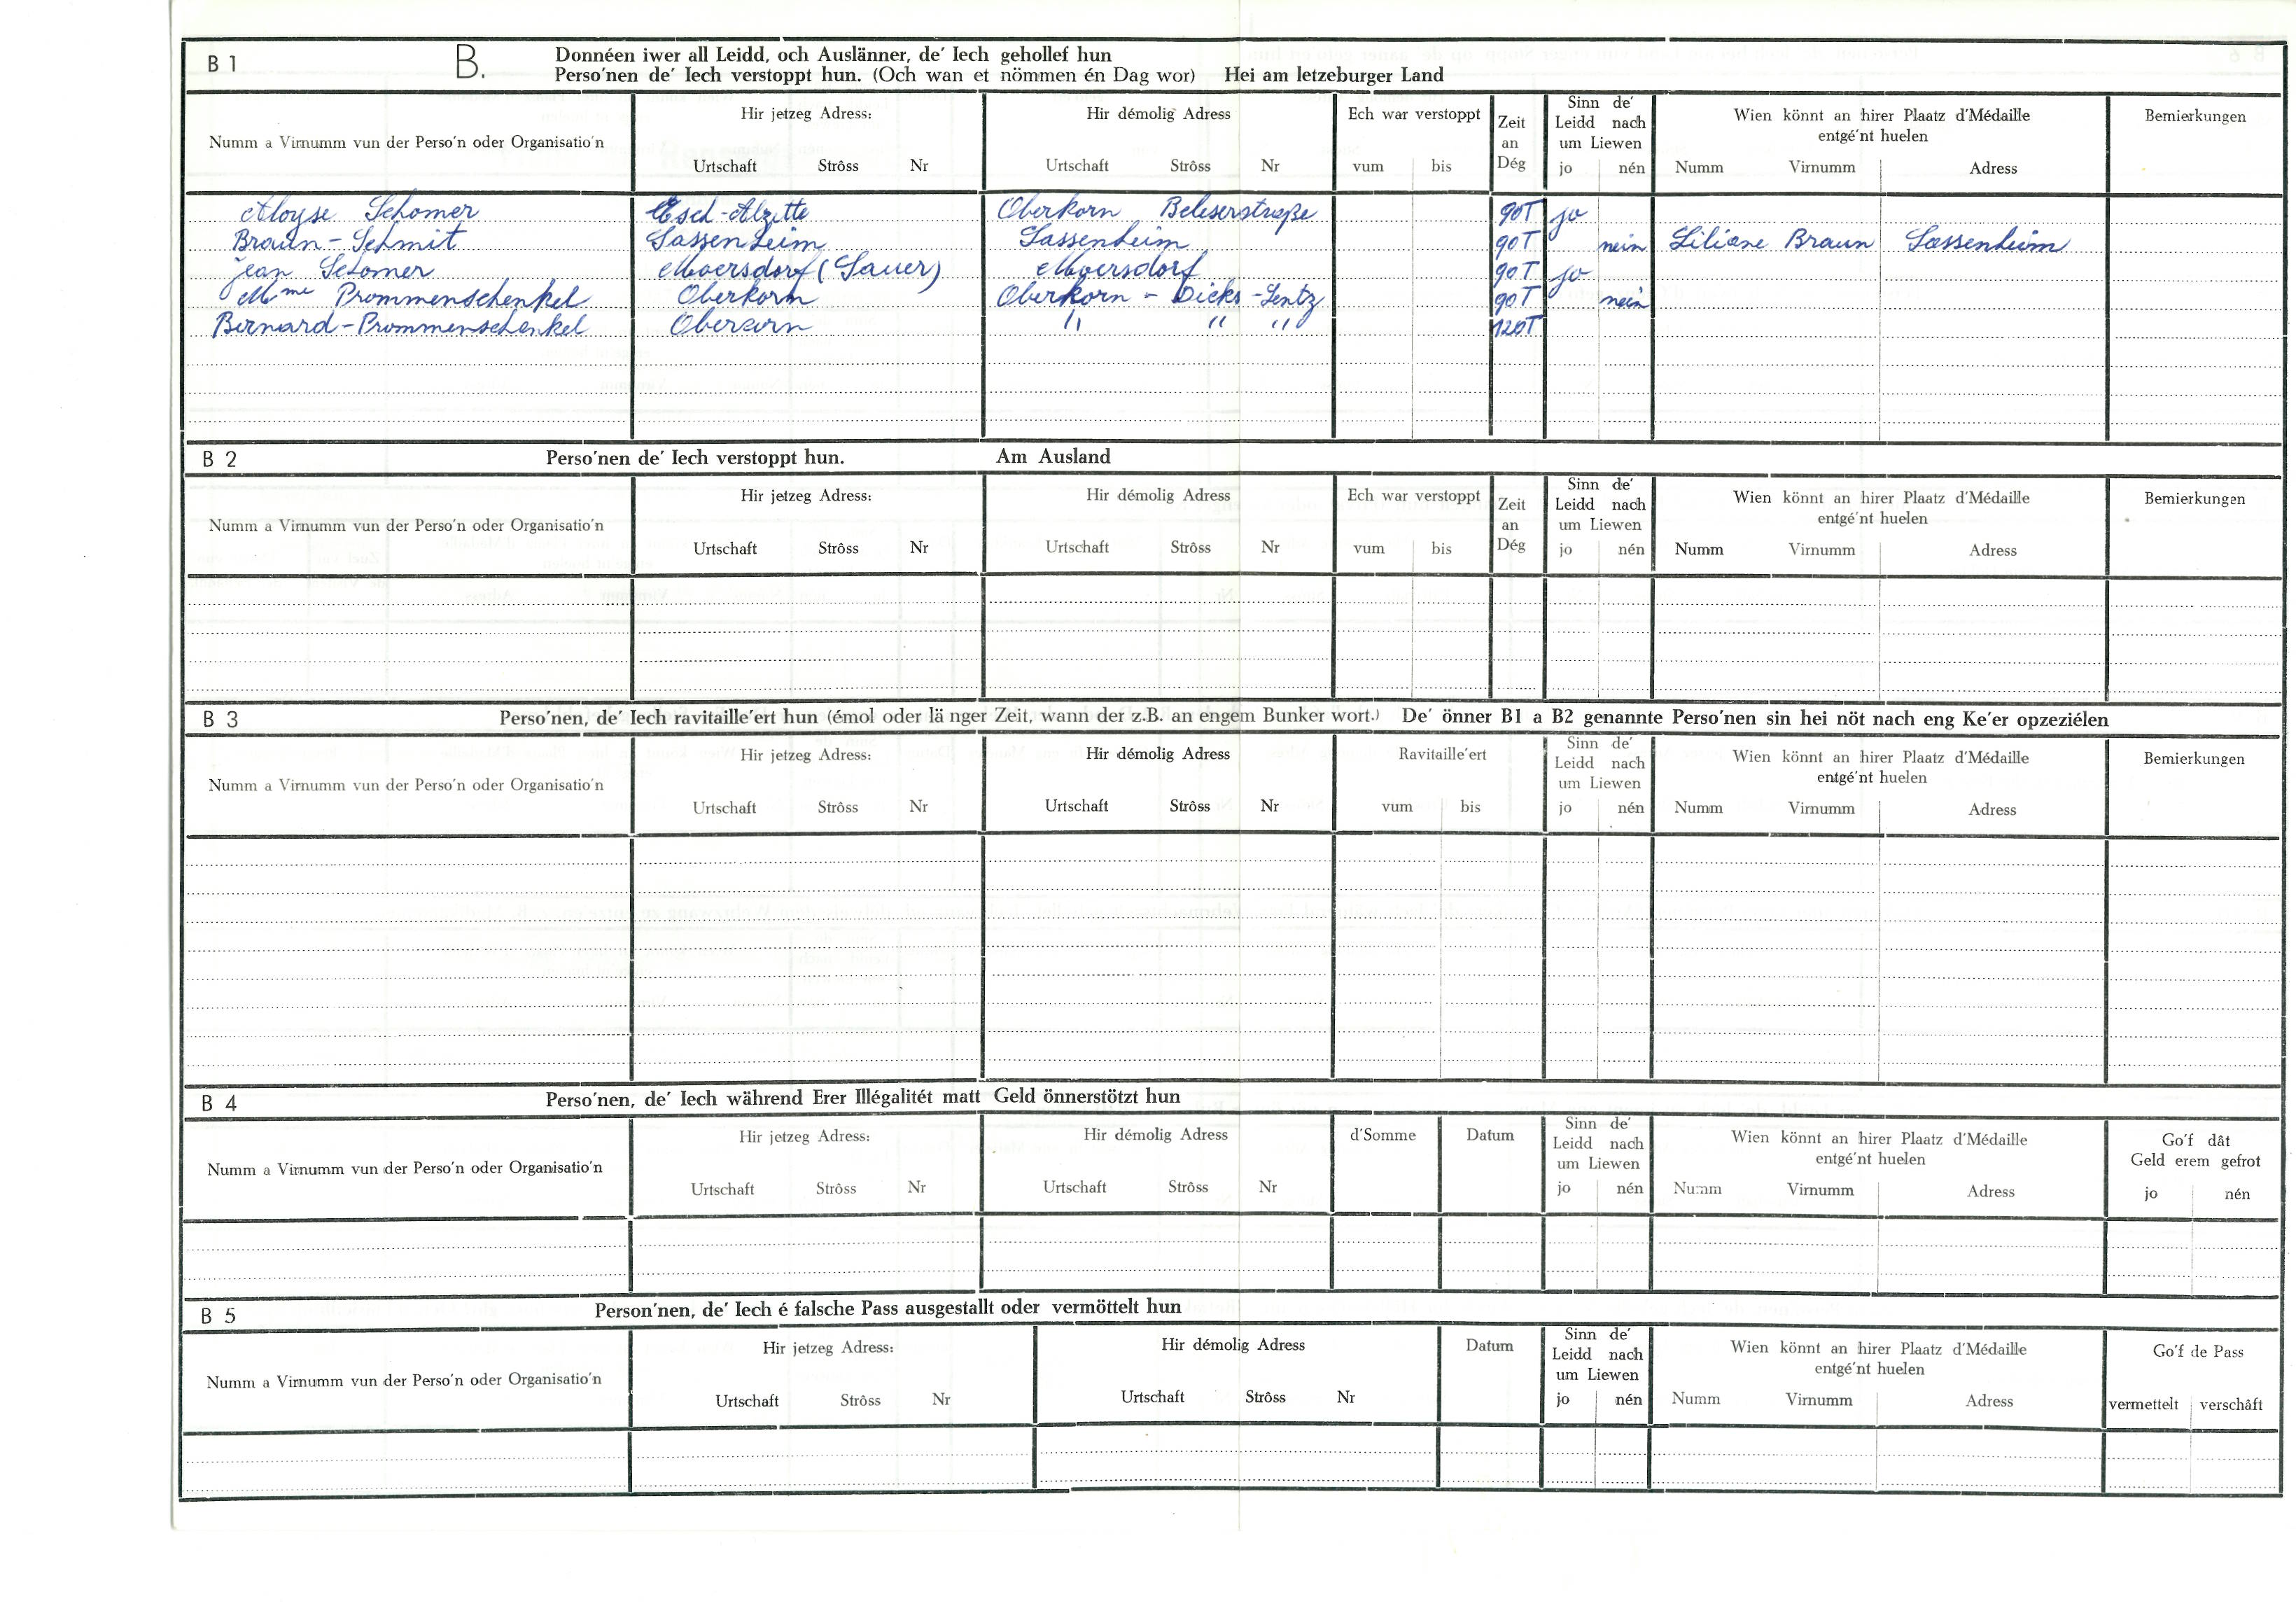 B 1 B. Donnéen iwer all Leidd, och Auslänner, de' Iech gehollef hun
Perso'nen de' Iech verstoppt hun. (Och wan et nömmen én Dag wor) Hei am letzeburger Land
Numm a Virnumm vun der Perso'n oder Organisatio'n
Hir jetzeg Adress:
Urtschaft Strôss Nr
Hir démolig Adress
Urtschaft Strôss Nr
Ech war verstoppt
vum bis
Zeit
an
Dég
Sinn de'
Leidd nach
um Liewen
jo nén
Wien könnt an hirer Plaatz d'Médaille
entgé'nt huelen
Numm Virnumm Adress
Bemierkungen
Aloyse Schomer Esch-Alzette Oberkorn Beleserstraße 90T jo
Braun-Schmit Sassenheim Sassenheim 90T nein Liliane Braun Sassenheim
Jean Schomer Moersdorf (Sauer) Moersdorf 90T jo
Mme Prommenschenkel Oberkorn Oberkorn - Dicks-Lentz 90T nein
Bernard-Prommenschenkel Obercorn " " " 120T
B 2 Perso'nen de' Iech verstoppt hun. Am Ausland
Numm a Virnumm vun der Perso'n oder Organisatio'n
Hir jetzeg Adress:
Urtschaft Strôss Nr
Hir démolig Adress
Urtschaft Strôss Nr
Ech war verstoppt
vum bis
Zeit
an
Dég
Sinn de'
Leidd nach
um Liewen
jo nén
Wien könnt an hirer Plaatz d'Médaille
entgé'nt huelen
Numm Virnumm Adress
Bemierkungen
B 3 Perso'nen, de' Iech ravitaille'ert hun (émol oder lä nger Zeit, wann der z.B. an engem Bunker wort.) De' önner B1 a B2 genannte Perso'nen sin hei nöt nach eng Ke'er opzeziélen
Numm a Virnumm vun der Perso'n oder Organisatio'n
Hir jetzeg Adress:
Urtschaft Strôss Nr
Hir démolig Adress
Urtschaft Strôss Nr
Ravitaille'ert
vum bis
Sinn de'
Leidd nach
um Liewen
jo nén
Wien könnt an hirer Plaatz d'Médaille
entgé'nt huelen
Numm Virnumm Adress
Bemierkungen
B 4 Perso'nen, de' Iech während Erer Illégalitét matt Geld önnerstötzt hun
Numm a Virnumm vun der Perso'n oder Organisatio'n
Hir jetzeg Adress:
Urtschaft Strôss Nr
Hir démolig Adress
Urtschaft Strôss Nr
d'Somme
Datum
Sinn de'
Leidd nach
um Liewen
jo nén
Wien könnt an hirer Plaatz d'Médaille
entgé'nt huelen
Numm Virnumm Adress
Go'f dât
Geld erem gefrot
jo nén
B 5 Person'nen, de' Iech é falsche Pass ausgestallt oder vermöttelt hun
Numm a Virnumm vun der Perso'n oder Organisatio'n
Hir jetzeg Adress:
Urtschaft Strôss Nr
Hir démolig Adress
Urtschaft Strôss Nr
Datum
Sinn de'
Leidd nach
um Liewen
jo nén
Wien könnt an hirer Plaatz d'Médaille
entgé'nt huelen
Numm Virnumm Adress
Go'f de Pass
vermettelt verschâft